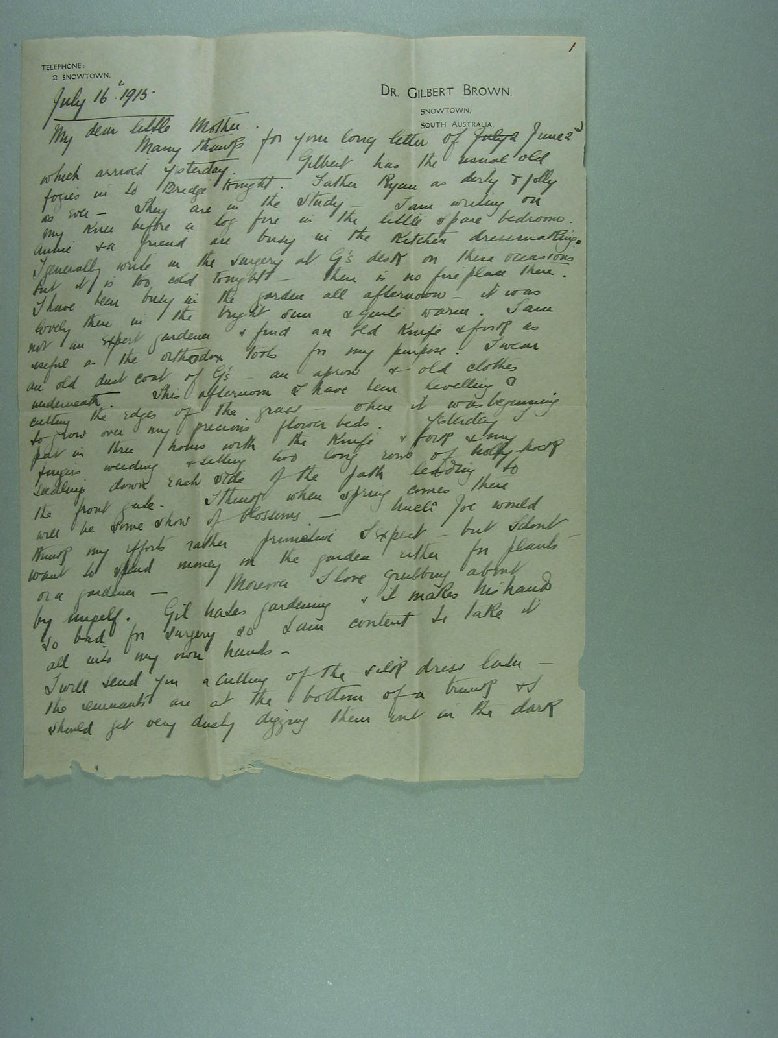 1
TELEPHONE:
2 SNOWTOWN.
DR. GILBERT BROWN
SNOWTOWN,
SOUTH AUSTRALIA
July 16th 1915.
My dear little Mother.
Many thanks for your long letter of July 2 June 2nd
which arrived yesterday. Gilbert has the usual old
fogies in to Bridge tonight. Father Ryan as dirty & jolly
as ever - They are in the study - I am writing on
my knee before a log fire in the little spare bedroom.
Annie & a friend are busy in the kitchen dressmaking.
I generally write in the surgery at G's desk on these occasions
but it is too cold tonight - there is no fire place there.
I have been busy in the garden all afternoon - it was
lovely there in the bright sun & quite warm. I am
not an expert gardener & find an old knife & fork as
useful as the orthodox tools for my purpose. I wear
an old dust coat of G's - an apron & old clothes
underneath. This afternoon I have been levelling &
cutting the edges of the grass where it was beginning
to grow over my precious flower beds. Yesterday I
put in three hours with the knife & fork & my
fingers weeding & setting two long rows of hollyhock
seedlings down each side of the path leading to
the front gate. I think when spring comes there
will be some show of blossoms - Uncle Joe would
think my efforts rather primitive I expect - but I dont
want to spend money on the garden either for plants
or a gardener - Moreover I love grubbing about
by myself. Gil hates gardening & it makes his hands
so bad for surgery so I am content to take it
all into my own hands -
I will send you a cutting of the silk dress later -
the remnants are at the bottom of a trunk & I
should get very dusty digging them out in the dark